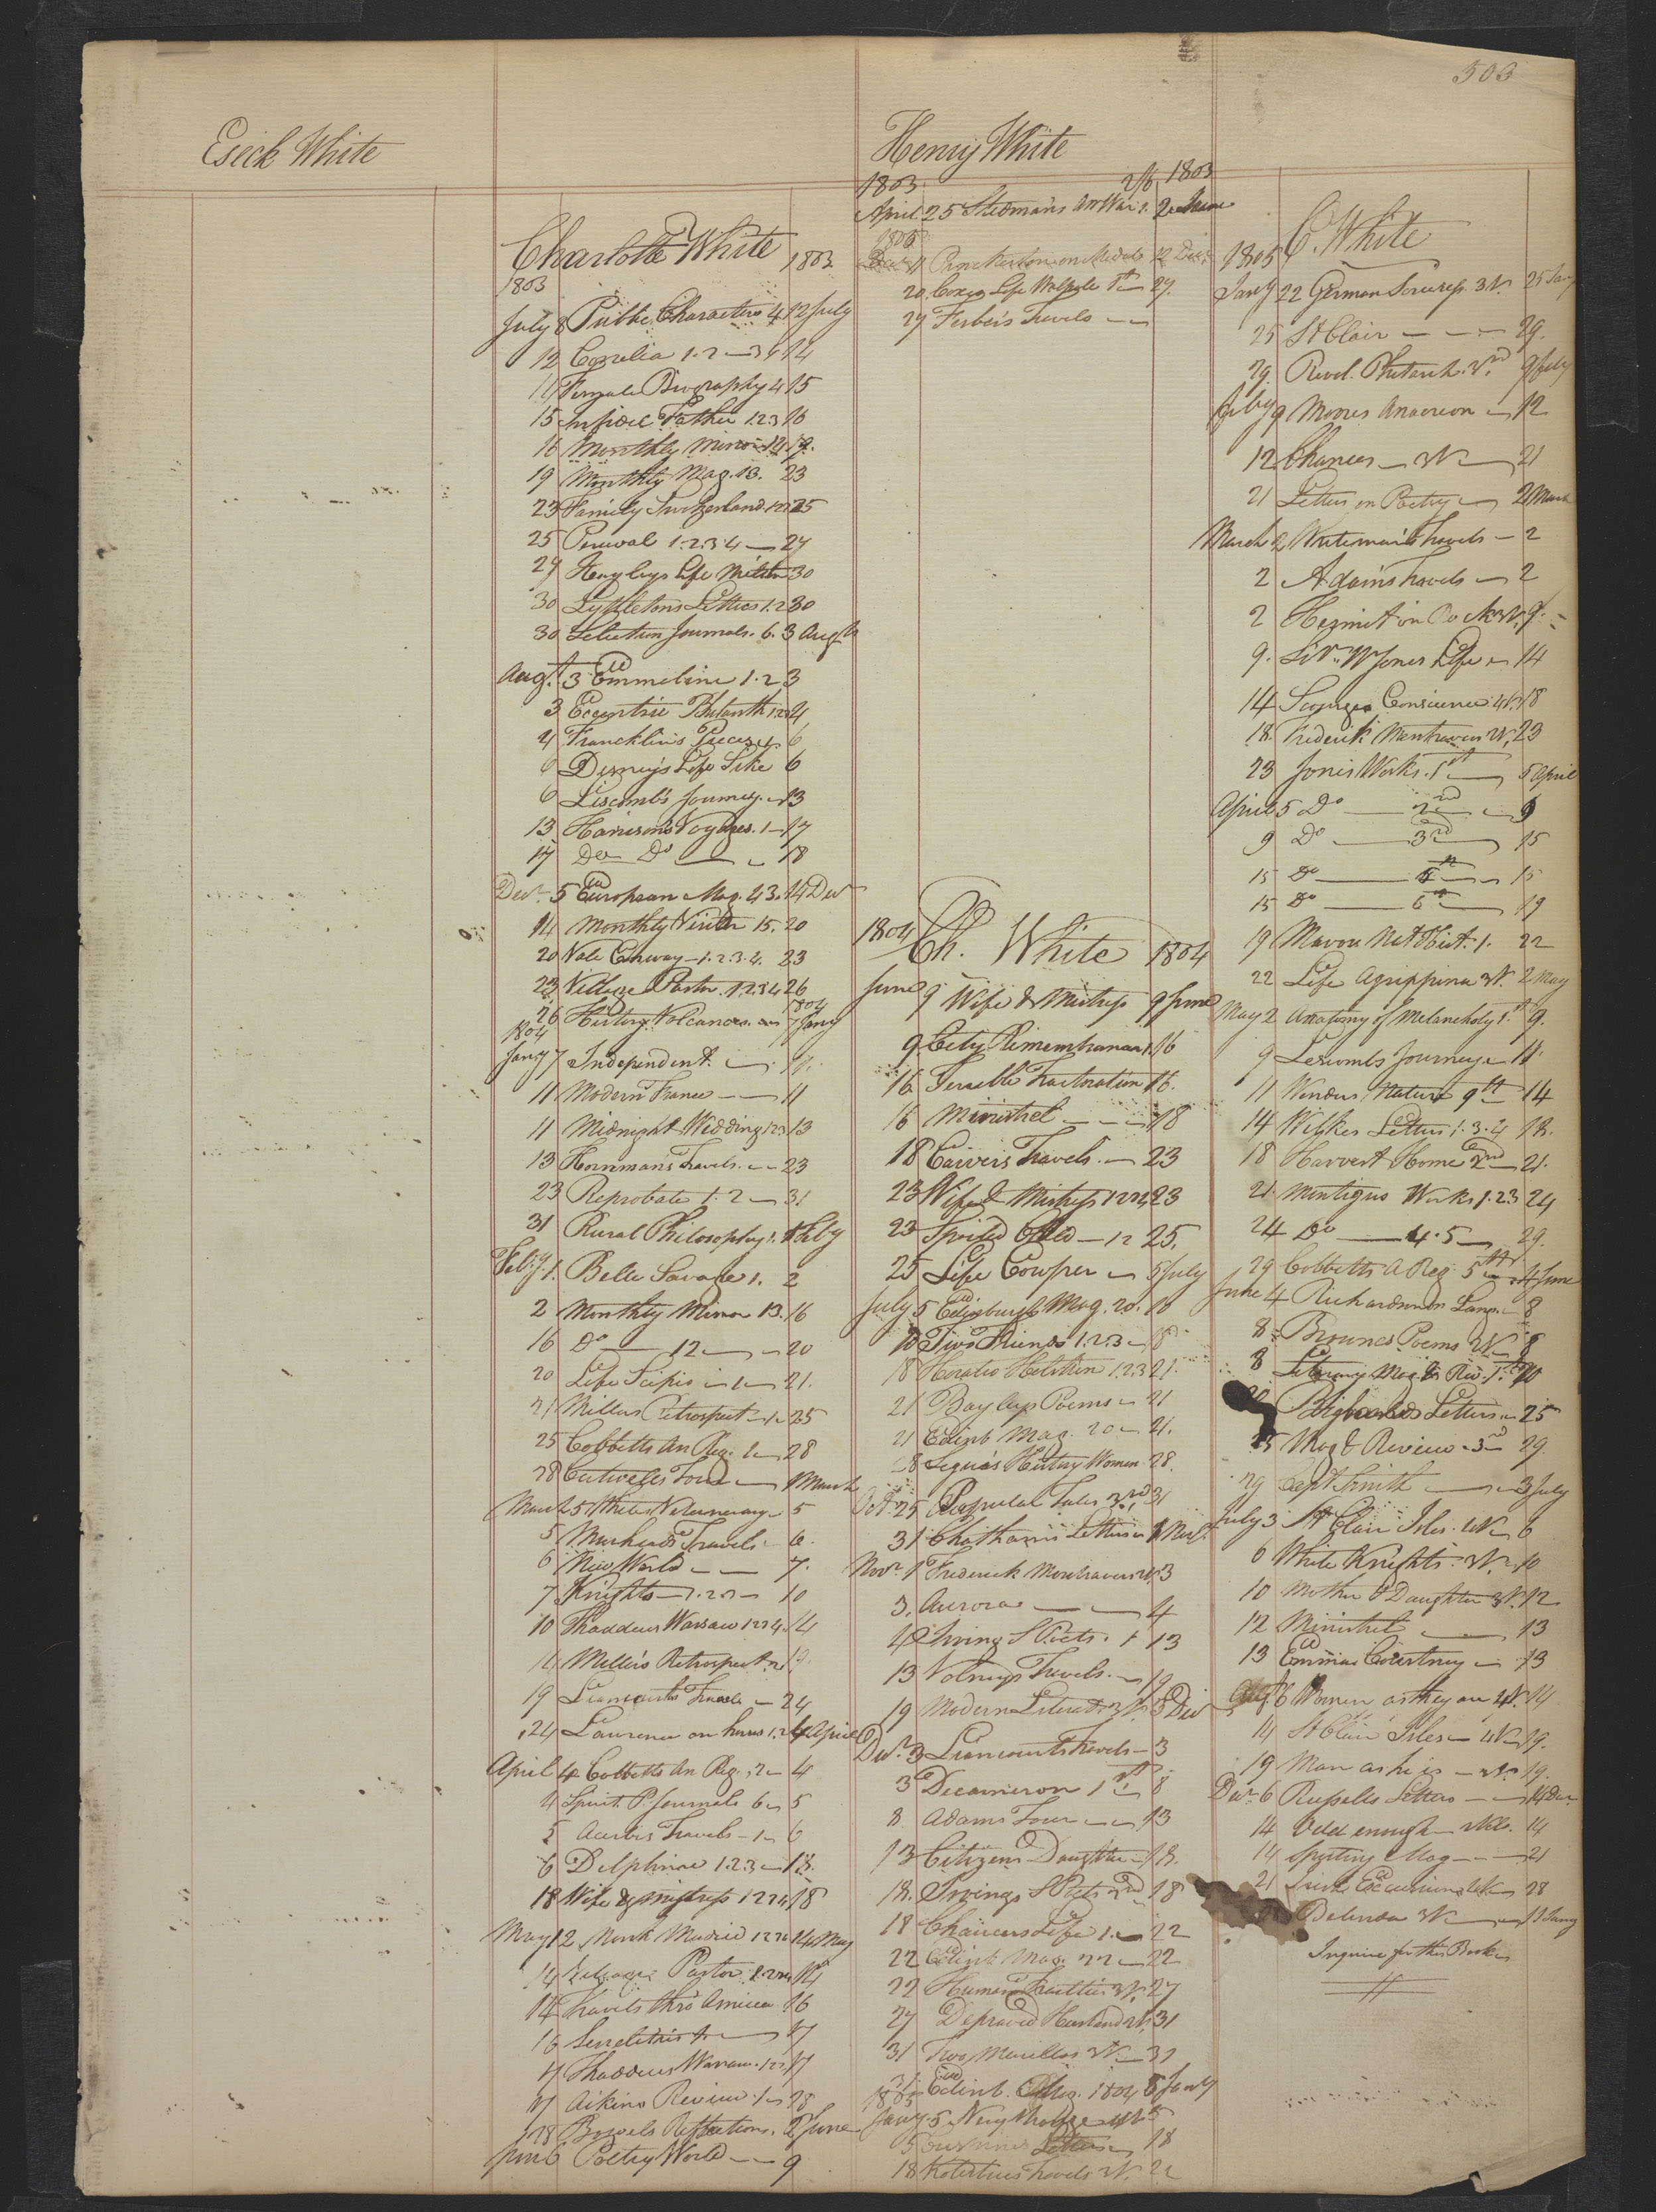 503
Eseck White
Charlotte White 1803
1803
July 8 Public Characters 4 12 July
12 Cornelia 1. 2 — 3 14
14 Female Biography 4 15
15 Infidel Father 1.2.3 16
16 Monthly Mirror 14 19.
19 Monthly Mag. 13. 23
23 Family Switzerland 1.2 25
25 Perceval 1.2.3.4 — 27
29 Hayleys Life Milton 30
30 Lyttletons Letters 1.2 30
30 Selection Journals. 6. 3 Augt
Augt. 3 Emmeline 1.2 3
3 Eccentric Philanth 1.2.3 4
4 Francklins Greece 6
6 Life 6
6 Liscombs Journey. 13
13 Harrisons Voyages. 1 — 17
17 Do Do — 18
Decr. 5 European Mag. 43. 14 Decr
14 Monthly Visitor 15. 20
20 Vale Conway — 1.2.3.4. 23
23 Village Pastor. 1.2.3.4 26
1804
26 History Volcanoes. 7 Jany
1804
Jany 7 Independent.
11 Modern France — — 11
11 Midnight Wedding 1.2.3 13
13 Hornmans Travels. — 23
23 Reprobate 1. 2 — 31
31 Rural Philosophy 1. 1 Feby
Feby 1. Belle Savage 1. 2
2 Monthly Mirror 13. 16
16 Do — 12 — 20
20 Life Scipio — 1 — 21.
21 Millers Retrospect — 1 — 25
25 Cobbetts An Reg. 1 — 28
28 — 1 March
March 5
5 Muirheads Travels — 6.
6 New World — — 7.
7 Knights — 1.2.3 — 10
10 Thaddeus Warsaw 1.2.3.4. 14
14 Millers Retrospect 2
19 Liancourts Travels — 24
24 Lawrence on horses 1.2 4 April
April 4 Cobbetts An Reg. 2 — 4
4 Spirit P. Journals 6 — 5
5 Acerbis Travels — 1 — 6
6 Delphine 1.2.3 — 18.
18 Wife & mistress 1.2.3.4 18
May 12 Monk Madrid 1.2.3 14 May
14 Village Pastor 1.2.3.4 14
14 Travels thro America 16
16 17
17 Thaddeus Warsaw. 17
17 Aikins Review. 1 — 28
28 Reflections. 2 June
June 6 Poetry World — — 9
Henry White
1803 2/6 1803
April 25 Stedmans 1. 2 June
1805
Decr 11 Pinckerton on Medals 12 Decr
20 Coxes Life Walpole 1st — 27.
27 Ferber's Travels — —
1804 Ch. White 1804
June 9 Wife & Mistress 9 June
9 City Remembrancer 1. 16
16 Terrible Tractoration 16.
16 Minstrel — — — 18
18 Carvers Travels. — 23
23 Wife & Mistress 1.2.3.4 23
23 Spoiled Child — 1.2 25.
25 Life Cowper — 5 July
July 5 Edinburgh Mag. 20. 10
10 Two Friends 1.2.3 — 18
18 Horatio Holstein 1.2.3 21.
21 Bayleys Poems — 21
21 Edinb Mag. 20 — 21.
28 Segurs History Women 28.
Oct. 25 Popular Tales 3rd 31
31 Chathams Letters — 1 Novr.
Novr 1 Frederick Montraven 2V. 3
3. Aurora — — 4
4 Irvings S Poets. 1 13
13 Volneys Travels. — 19
19 Modern Literat. 3V. 3 Decr
Decr. 3 Liancourts Travels — 3
3 Decameron 1st 8
8 Adams Tour — — 13
13 Citizens Daughter — 18.
18. Irvings S Poets 2nd 18
18 Chaucers Life 1. — 22
22 Edinb Mag. 22 — 22
22 Human Frailties 3V. 27
27 Depraved Husband 2V. 31
31 Two Marillos 3V. — 31
31 Edinb. Mag. 1804 5 Jany
1805
Jany 5 5
5 Letters — 18
18 Kotzebues Travels 3V. 22
C. White
1805
Jany 22 German 3V. 25 Jany
25 St Clair — — — 29.
29. Revol. Plutarch. 3rd 9 Feby
Feby 9 Moores Anacreon — 12
12 Chances — 3V — 21
21 Letters on Poetry — 2 March
March 2 Travels — 2
2 Adams Travels — 2
2 Hermit on Rock 3V. 9.
9. Sir Wm Jones Life — 14
14 Conscience 4V. 18
18. Frederick Montraven 2V. 23
23 Jones Works. 1st — 5 April
April 5 Do — 2nd — 9
9 Do — 3rd — 15
15 Do — 15
15 Do — 6th — 19
19 Mavor Nat Hist. 1. 22
22 Life Agrippina 3V. 2 May
May 2 Anatomy of Melancholy 1st 9.
9 Liscombs Journey — 11.
11 Wonders Nature 9th — 14
14 Wilkes Letters 1.3.4 18.
18 Harvest Home 2nd — 21.
21 Montagus Works 1.2.3 24
24 Do — 4.5 — 29.
29 Cobbetts A Reg. 5th — 4 June
June 4 Richardson on Lang. — 8
8 Brownes Poems 3V. 8
8 Literary Mag & Rev. 1st 10
Letters — 25
25 Mag & Review — 3rd 29.
29 Capt Smith — 3 July
July 3 St Clair Isles. 4V — 6
6 White Knights. 3V. 10
10 Mother & Daughter 3V. 12
12 Minstrel — 13
13 Emma Courtney — 13
Augt 6 Women as they are 4V. 14
14 St Clair Isles — 4V — 19.
19 Man as he is — 19.
Decr 6 Russells Letters — — 14 Decr
14 Odd enough 14
14 Sporting Mag — — 21
21 Irish Excursion 4V — 28
Belinda 3V — 11 Jany
Inquire for this Book